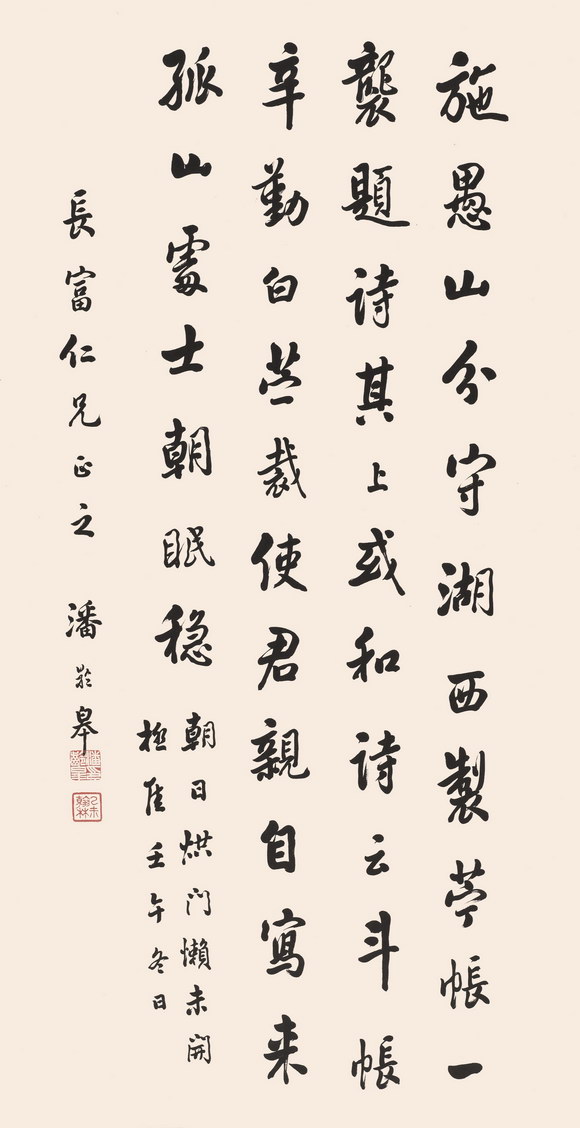 施愚山分守湖西製苧帳一
襲題詩其上或和詩云斗帳
辛勤白苎裁使君親自寫来
孤山處士朝眠稳
朝日烘门懶未開
極佳壬午冬日
長富仁兄正之 潘齡皋
乙未翰林